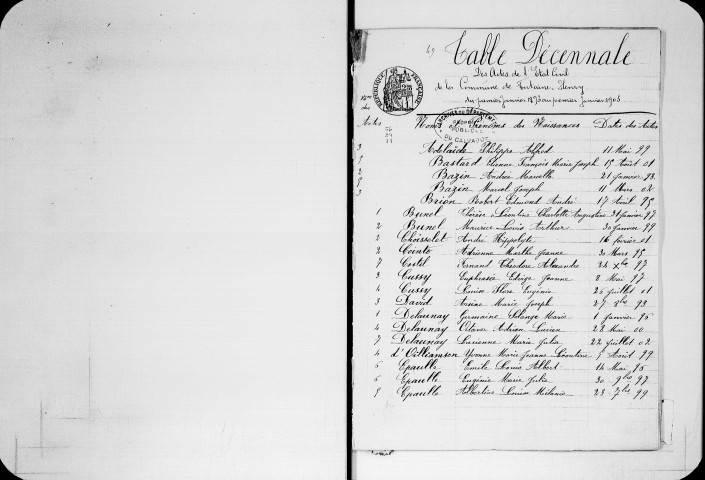 Table Décennale
Des Actes de l'Etat Civil
de la Commune de Fontaine Henry
du premier janvier 1893 au premier janvier 1903
RÉPUBLIQUE FRANÇAISE
Nos des Actes Noms et Prénoms des Naissances Dates des Actes
ARCHIVES DU DÉPARTEMENT
PROPRIÉTÉ PUBLIQUE
DU CALVADOS
3 Adelaïde Philippe Alfred 11 Mai 99
5 Bastard Etienne François Marie Joseph 15 Août 01
2 Bazin Andrée Marcelle 21 Janvier 93
5 Bazin Marcel Joseph 11 Mars 02
3 Brion Robert Edmond André 17 Avril 95
1 Bunel Thérèse Léontine Charlotte Augustine 31 Janvier 97
2 Bunel Maurice Louis Arthur 30 Janvier 99
2 Choisselet André Hippolyte 16 février 01
2 Cointe Adrienne Marthe Jeanne 30 Mars 95
7 Costil Fernand Théodore Alexandre 24 Xbre 97
3 Cussy Euphrasie Edwige Jeanne 8 Mai 97
4 Cussy Louise Flore Eugénie 25 Juillet 01
3 David Arsène Marie Joseph 27 8bre 93
1 Delaunay Germaine Solange Marie 1 Janvier 95
4 Delaunay Octave Adrien Lucien 23 Mai 00
7 Delaunay Lucienne Maria Julia 22 Juillet 02
4 d'Oilliamson Yvonne Marie Jeanne Léontine 5 Août 99
5 Epaulle Emile Louis Albert 14 Mai 95
6 Epaulle Eugénie Marie Julia 30 9bre 97
5 Epaulle Albertine Louise Mélanie 23 7bre 99